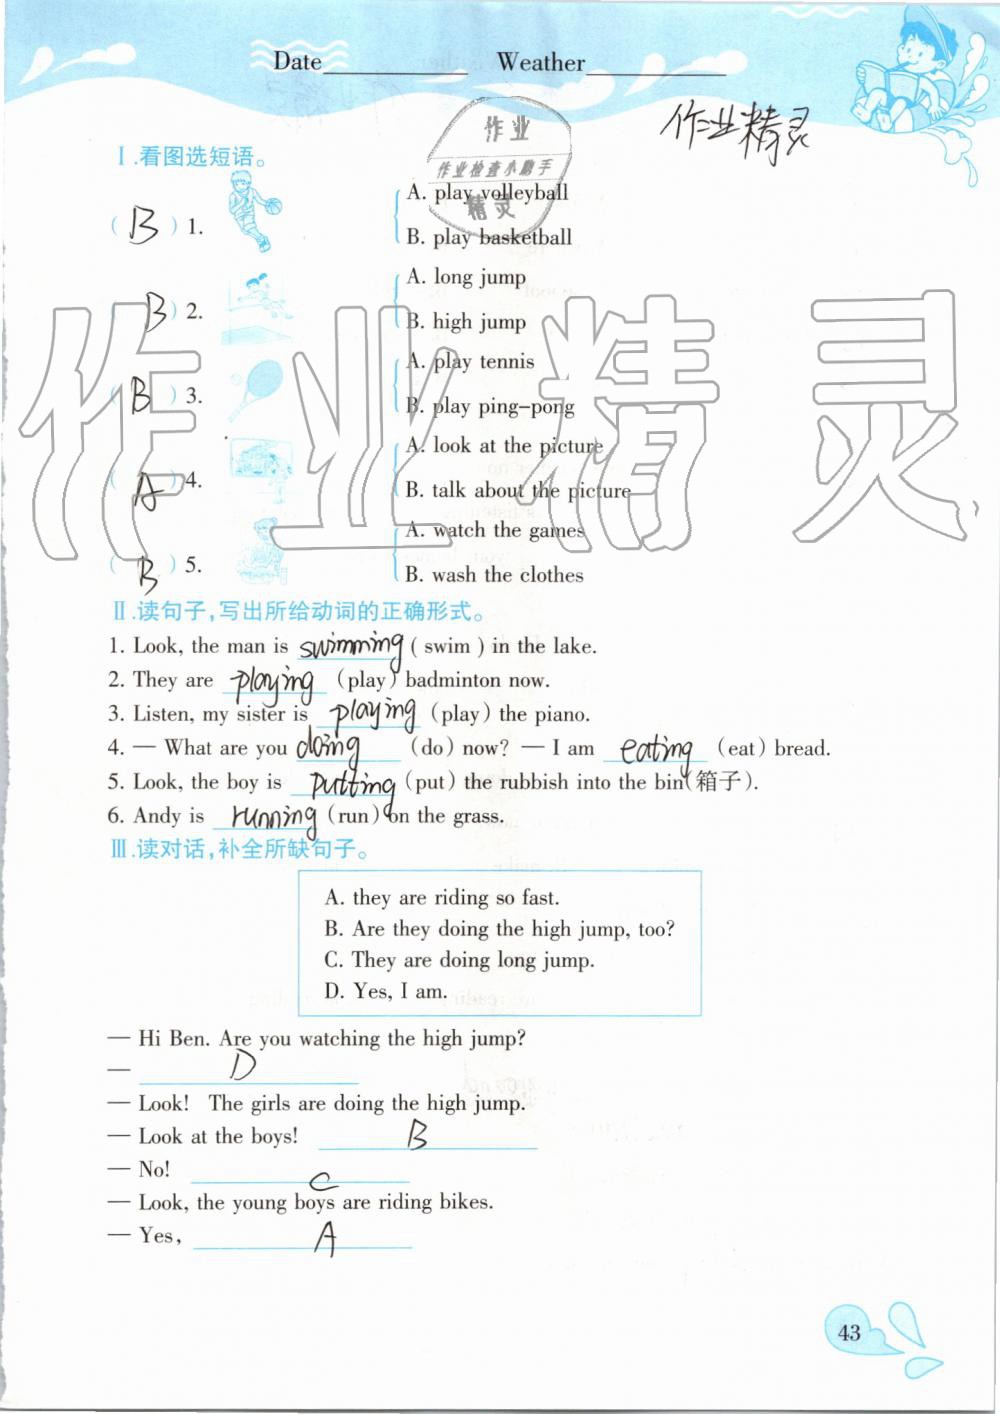 Date__________ Weather__________
作业精灵
作业
作业检查小助手
精灵
Ⅰ.看图选短语。
( B ) 1. A. play volleyball
B. play basketball
( B ) 2. A. long jump
B. high jump
( B ) 3. A. play tennis
B. play ping-pong
( A ) 4. A. look at the picture
B. talk about the picture
( B ) 5. A. watch the games
B. wash the clothes
作业精灵
Ⅱ.读句子,写出所给动词的正确形式。
1. Look, the man is swimming ( swim ) in the lake.
2. They are playing (play) badminton now.
3. Listen, my sister is playing (play) the piano.
4. — What are you doing (do) now? — I am eating (eat) bread.
5. Look, the boy is putting (put) the rubbish into the bin(箱子).
6. Andy is running (run) on the grass.
Ⅲ.读对话,补全所缺句子。
A. they are riding so fast.
B. Are they doing the high jump, too?
C. They are doing long jump.
D. Yes, I am.
— Hi Ben. Are you watching the high jump?
— D
— Look! The girls are doing the high jump.
— Look at the boys! B
— No! C
— Look, the young boys are riding bikes.
— Yes, A
43